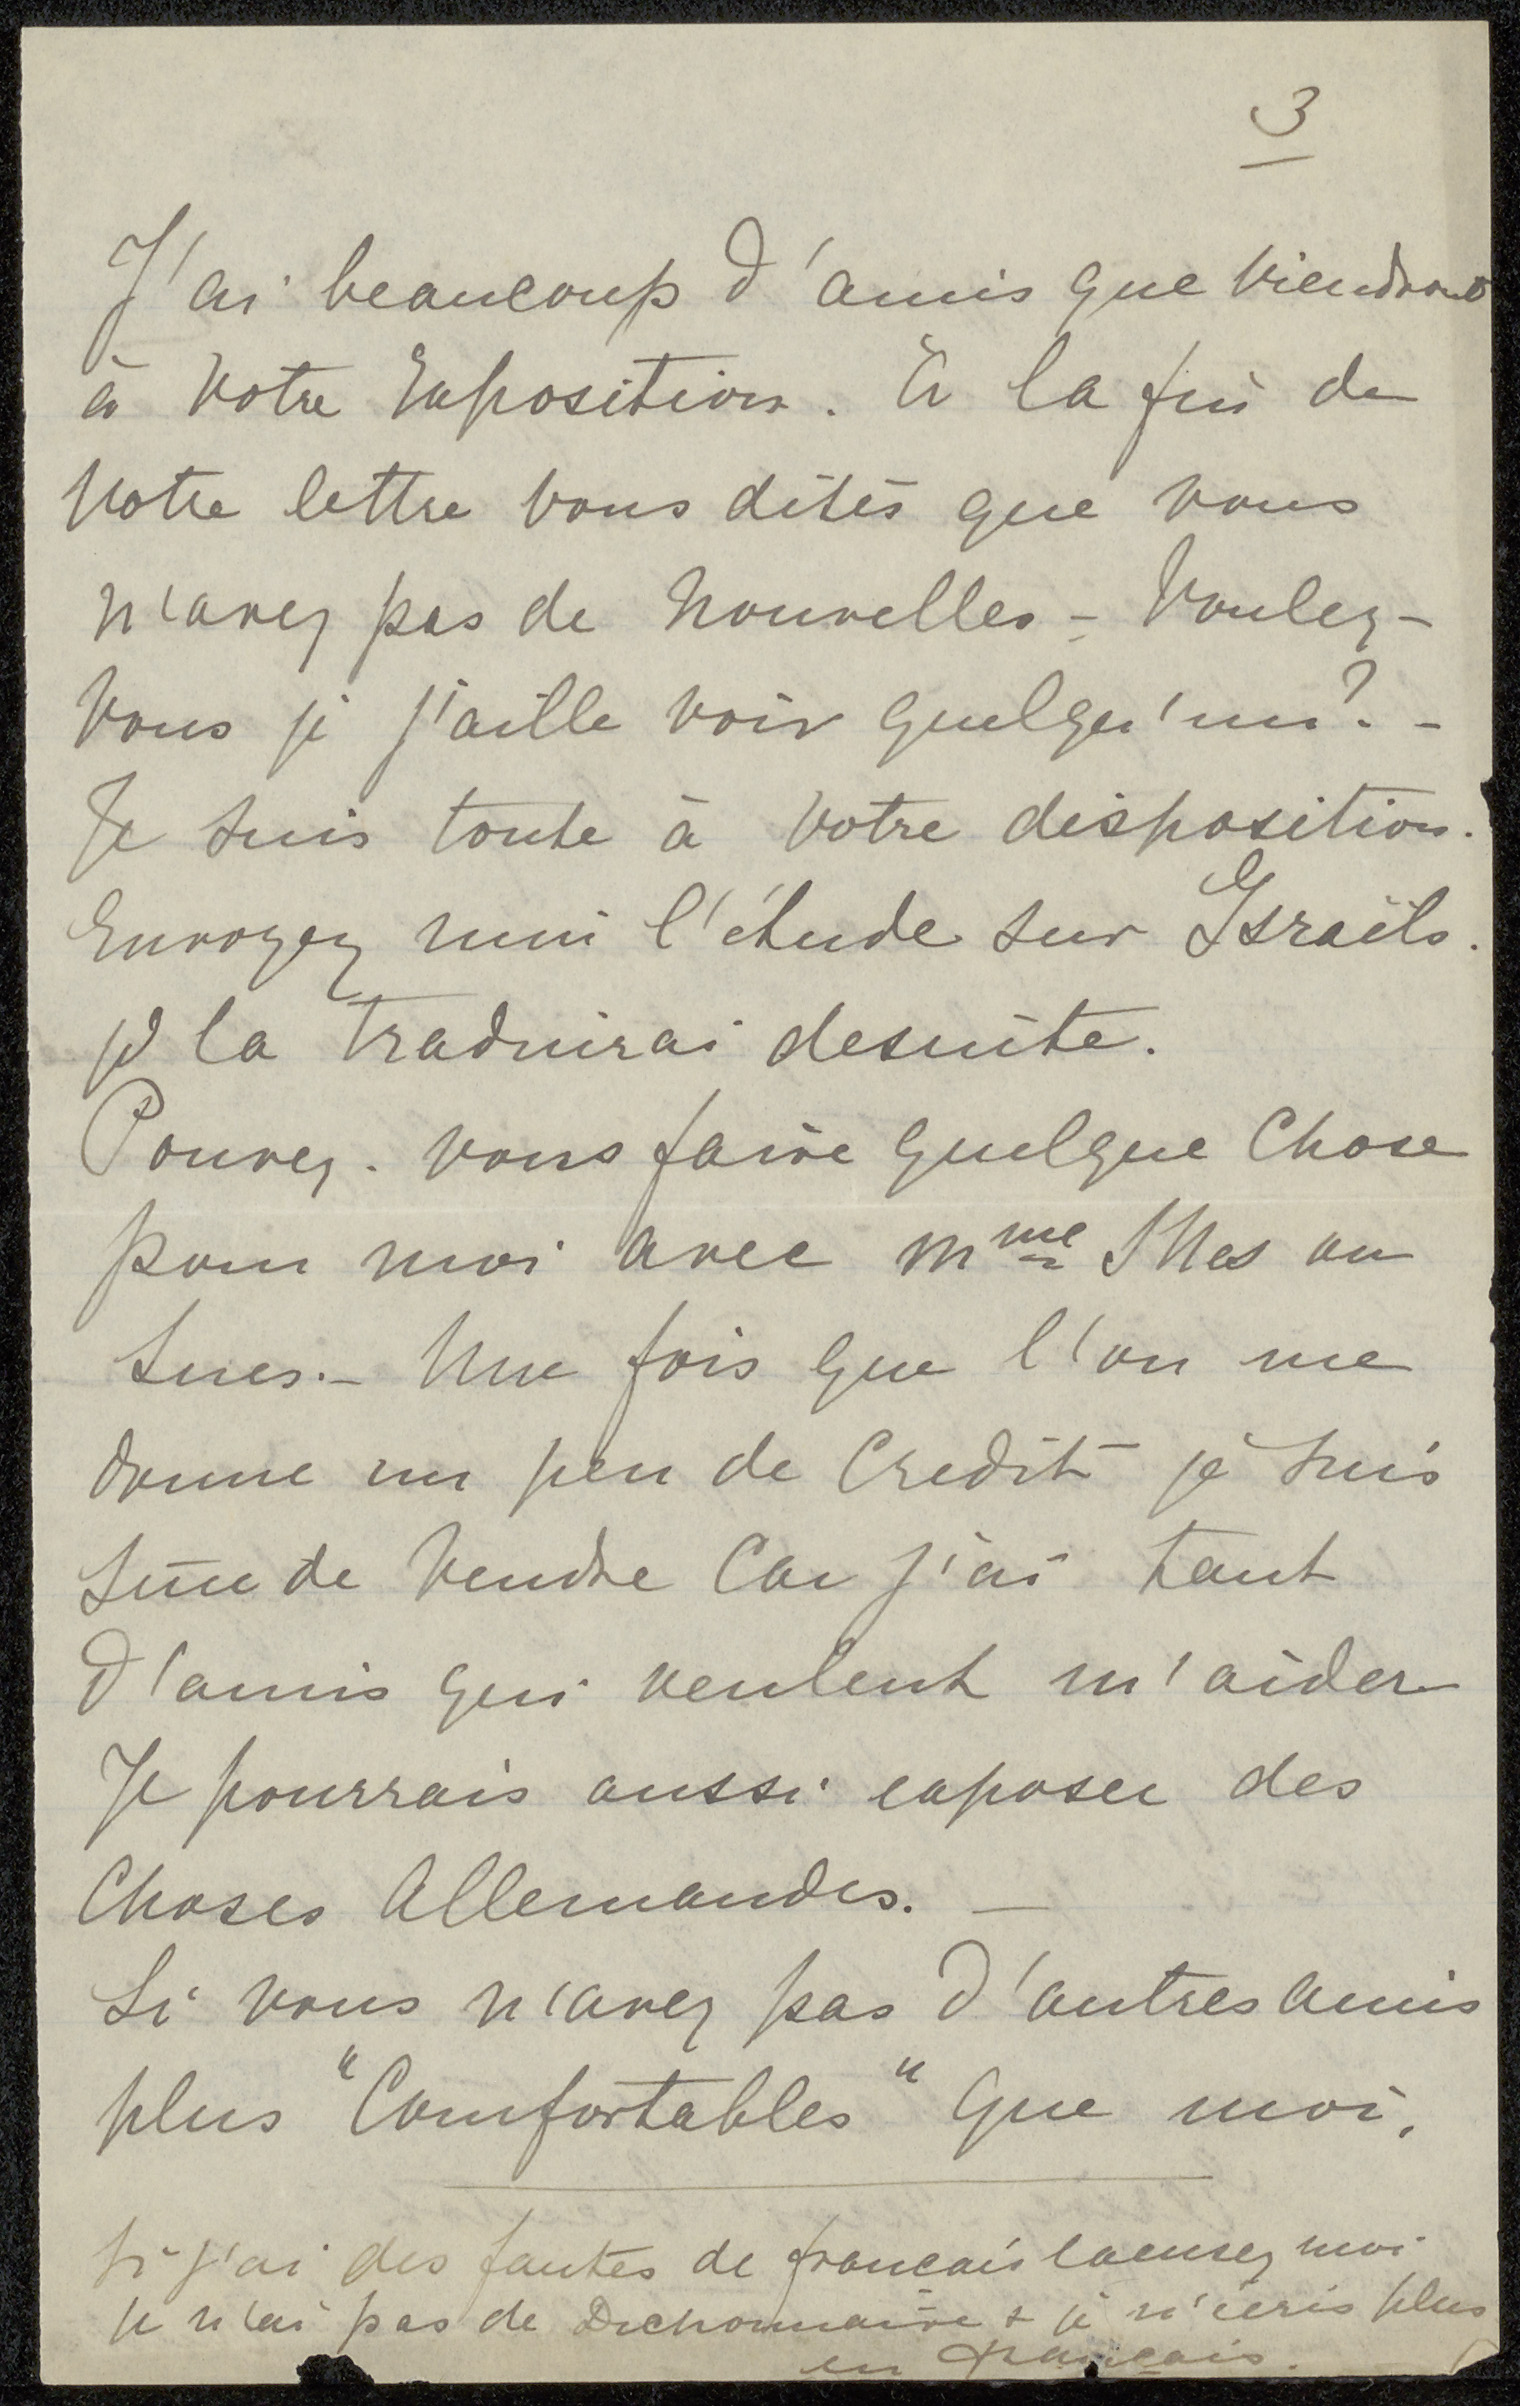 3
J'ai beaucoup d'amis que viendront
à votre Exposition. à la fin de
votre lettre vous dites que vous
n'avez pas de nouvelles - Voulez-
vous je j'aille voir quelqu'un? -
Je suis toute à votre disposition.
Envoyez moi l'étude sur Israëls.
je la traduirai desuite.
Pouvez-vous faire quelque chose
pour moi avec Mme ou
Une fois que l'on me
donne un peu de Credit je suis
sûre de vendre car j'ai tant
d'amis qui veulent m'aider
Je pourrais aussi exposer des
choses Allemandes. —
Si vous n'avez pas d'autres amis
plus "Comfortables" que moi,
Si j'ai des fautes de français excusez moi
je n'ai pas de Dictionnaire & je n'écris plus
en français.